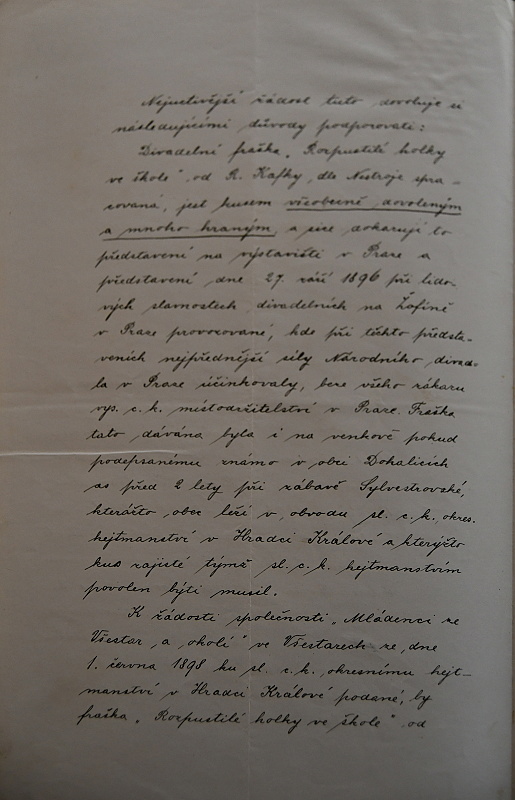 Nejuctivější žádost tuto dovoluje si
následujícími důvody podporovati:
Divadelní fraška „Rozpustilé holky
ve škole" od R. Kafky, dle Nestroje spra-
covaná, jest kusem všeobecně dovoleným
a mnoho hraným, a sice dokazují to
představení na výstavišti v Praze a
představení dne 27. září 1896 při lido-
vých slavnostech divadelních na Žofíně
v Praze provozované, kde při těchto předsta-
veních nejpřednější síly Národního divad-
la v Praze účinkovaly, beze všeho zákazu
vys. c. k. místodržitelství v Praze. Fraška
tato dávána byla i na venkově pokud
podepsanému známo v obci Dohalicích
as před 2 lety při zábavě Sylvestrovské,
kterážto obec leží v obvodu sl. c. k. okres.
hejtmanství v Hradci Králové a kterýžto
kus zajisté týmž sl. c. k. hejtmanstvím
povolen býti musil.
K žádosti společnosti „Mládenci ze
Všestar a okolí" ve Všestarech ze dne
1. června 1898 ku sl. c. k. okresnímu hejt-
manství v Hradci Králové podané, by
fraška „Rozpustilé holky ve škole" od